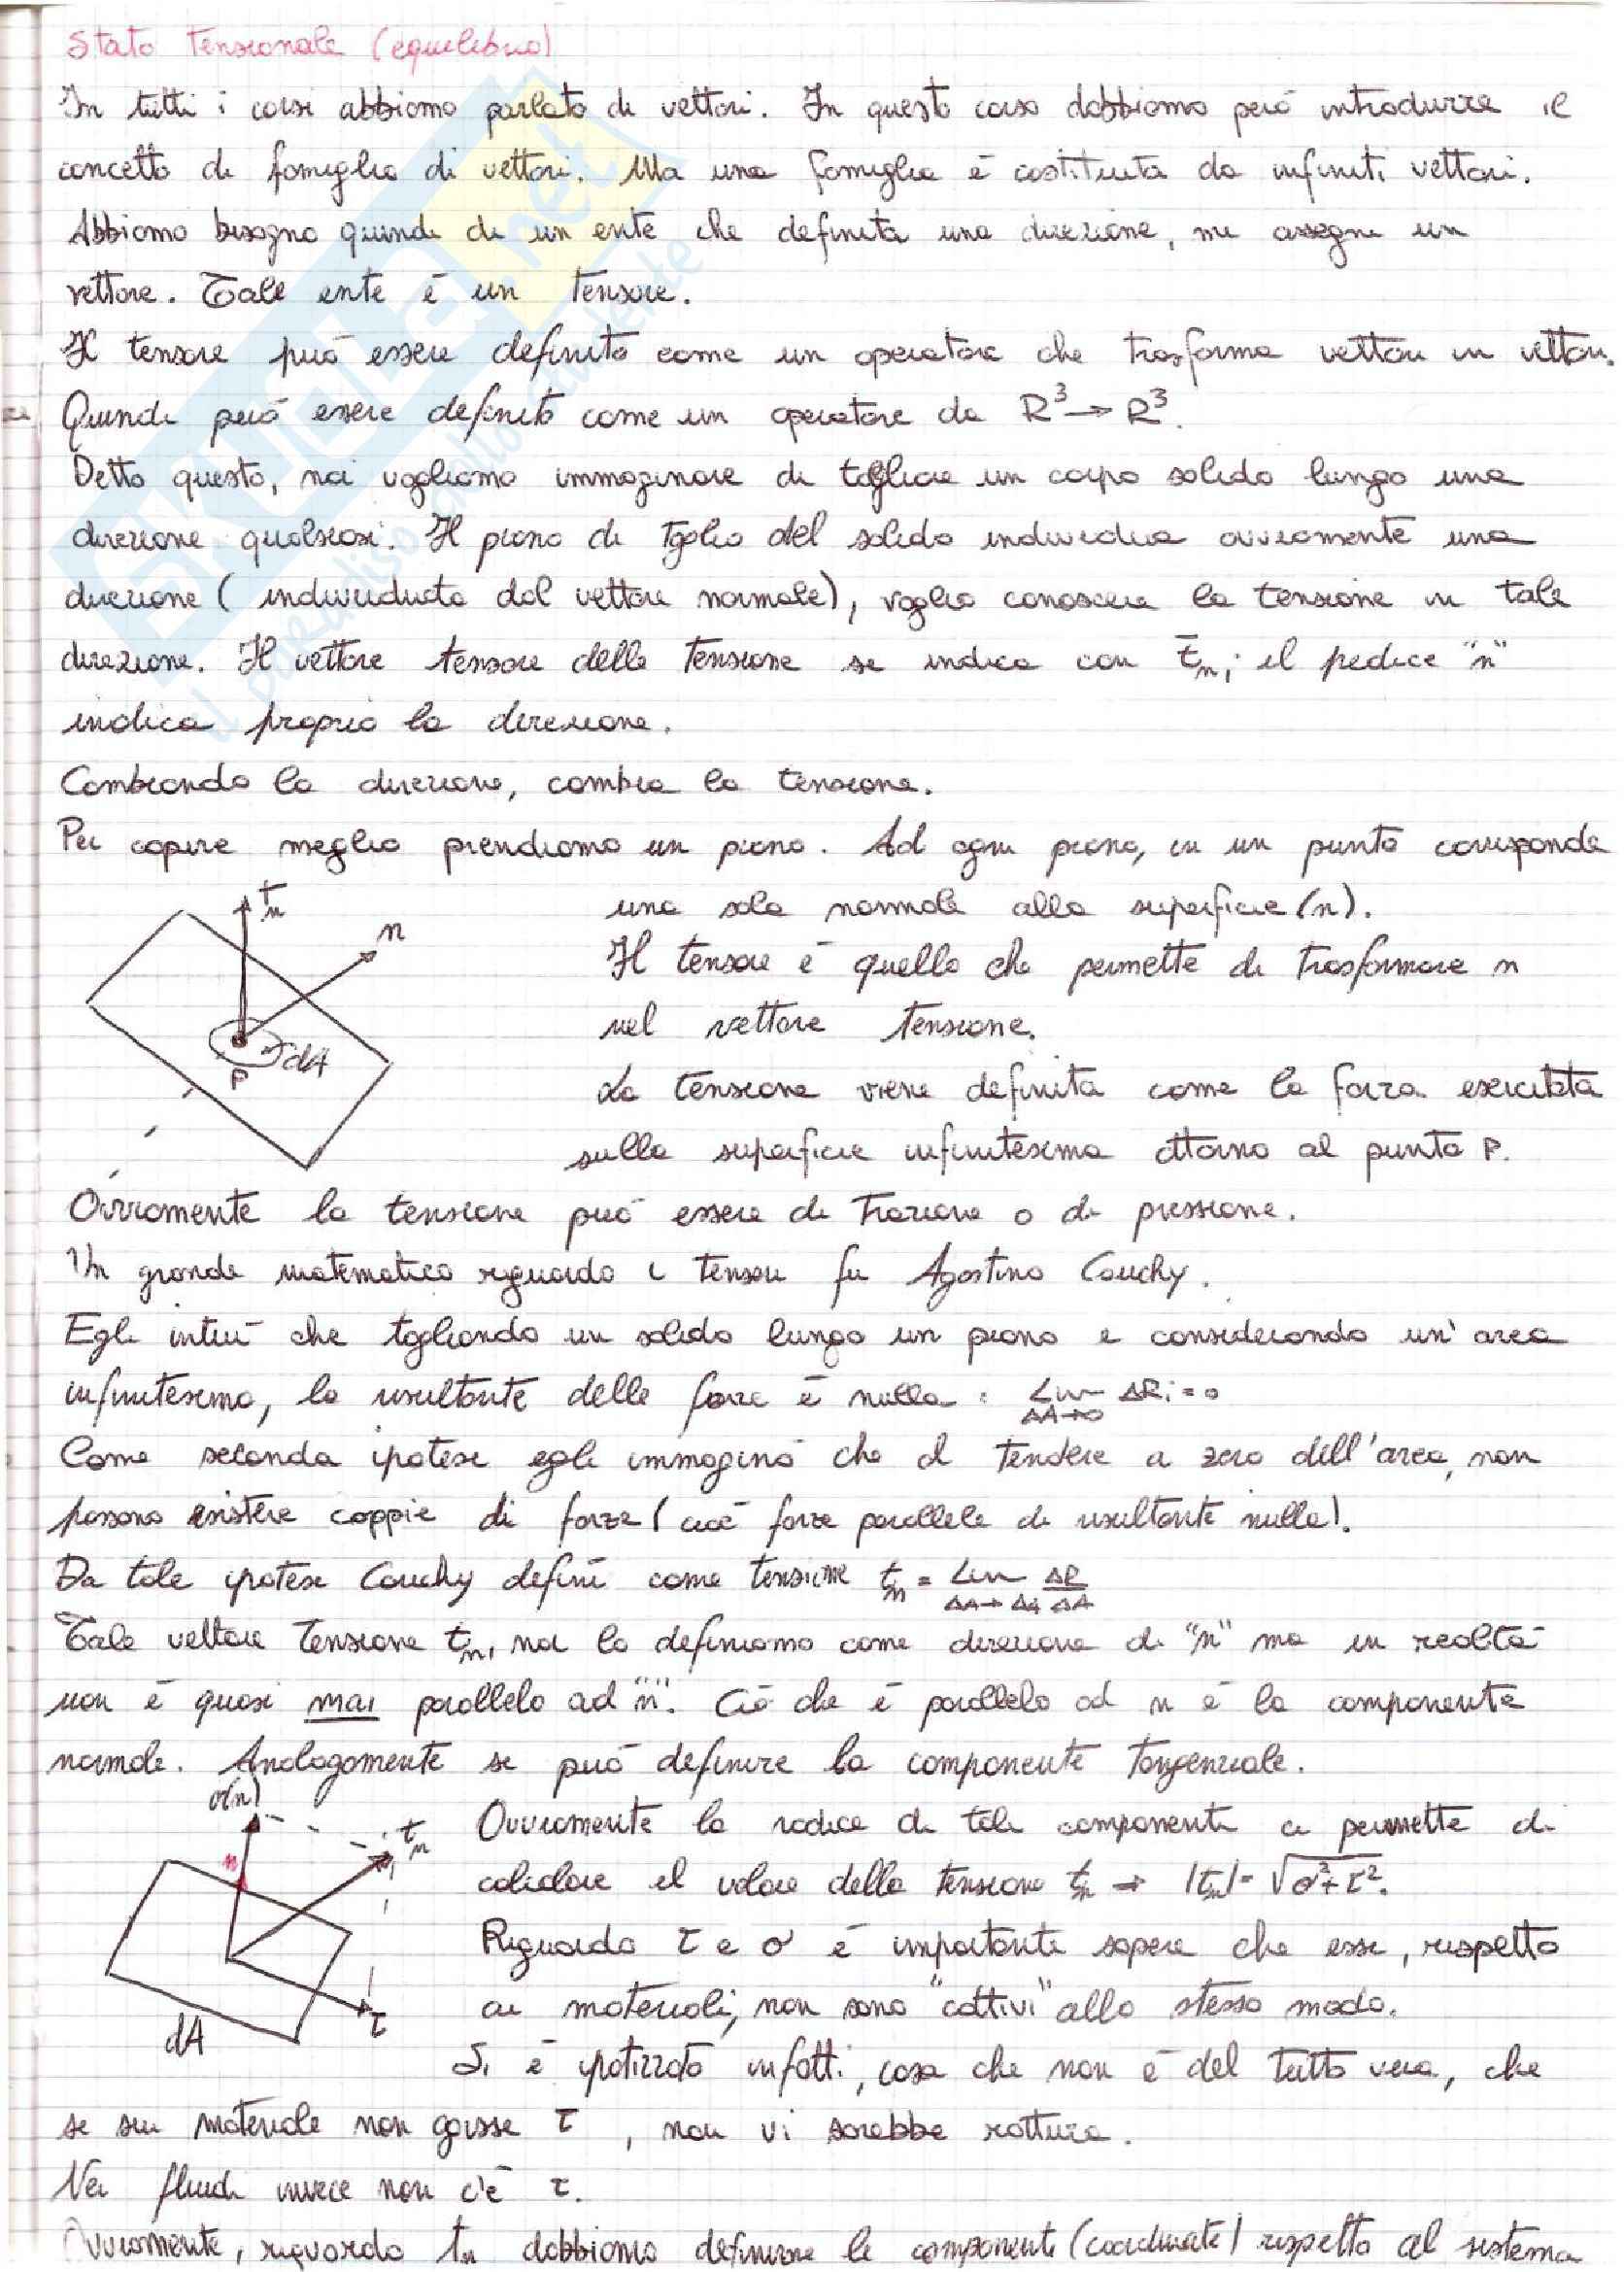 Stato Tensionale (equilibrio)
In tutti i corsi abbiamo parlato di vettori. In questo corso dobbiamo però introdurre il
concetto di famiglia di vettori. Ma una famiglia è costituita da infiniti vettori.
Abbiamo bisogno quindi di un ente che definita una direzione, mi assegni un
vettore. Tale ente è un tensore.
Il tensore può essere definito come un operatore che trasforma vettori in vettori.
Quindi può essere definito come un operatore da R³→R³.
Detto questo, noi vogliamo immaginare di tagliare un corpo solido lungo una
direzione qualsiasi. Il piano di taglio del solido individua ovviamente una
direzione (individuata dal vettore normale), voglio conoscere la tensione in tale
direzione. Il vettore tensore della tensione si indica con t̄n; il pedice "n"
indica proprio la direzione.
Cambiando la direzione, cambia la tensione.
Per capire meglio prendiamo un piano. Ad ogni piano, in un punto corrisponde
una sola normale alla superficie (n).
tn
n
Il tensore è quello che permette di trasformare n
nel vettore tensione.
dA
P
La tensione viene definita come la forza esercitata
sulla superficie infinitesima attorno al punto P.
Ovviamente la tensione può essere di trazione o di pressione.
Un grande matematico riguardo i tensori fu Agostino Cauchy.
Egli intuì che tagliando un solido lungo un piano e considerando un'area
infinitesima, la risultante delle forze è nulla: Lim ΔA→0 ΔRi = 0
Come seconda ipotesi egli immaginò che al tendere a zero dell'area, non
possono esistere coppie di forze (cioè forze parallele di risultante nulla).
Da tale ipotesi Cauchy definì come tensione tn = Lim ΔR/ΔA
Tale vettore tensione tn, noi lo definiamo come direzione di "n" ma in realtà
non è quasi mai parallelo ad "n". Ciò che è parallelo ad n è la componente
normale. Analogamente si può definire la componente tangenziale.
σ(n)
n
tn
τ
dA
Ovviamente la radice di tali componenti ci permette di
calcolare il valore della tensione tn → |tn| = √σ²+τ².
Riguardo τ e σ è importante sapere che esse, rispetto
ai materiali, non sono "cattivi" allo stesso modo.
Si è ipotizzato infatti, cosa che non è del tutto vera, che
se sui materiale non agisse τ, non vi sarebbe rottura.
Nei fluidi invece non c'è τ.
Ovviamente, riguardo tn dobbiamo definirne le componenti (coordinate) rispetto al sistema
SKUOLA.net
il paradiso dello studente